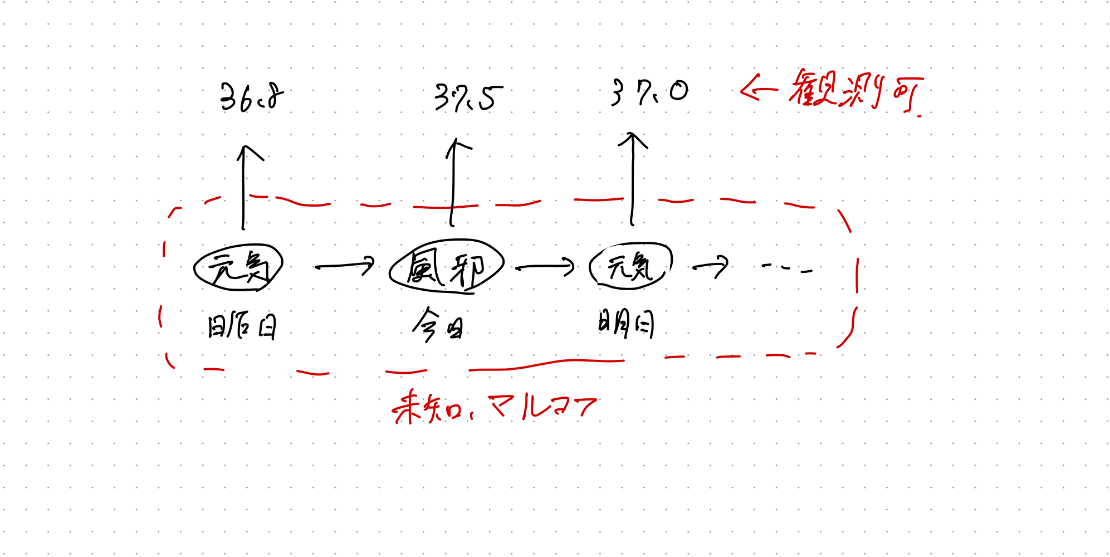 36.8 37.5 37.0 ← 観測可.
元気 → 風邪 → 元気 → ---
昨日 今日 明日
未知、マルコフ